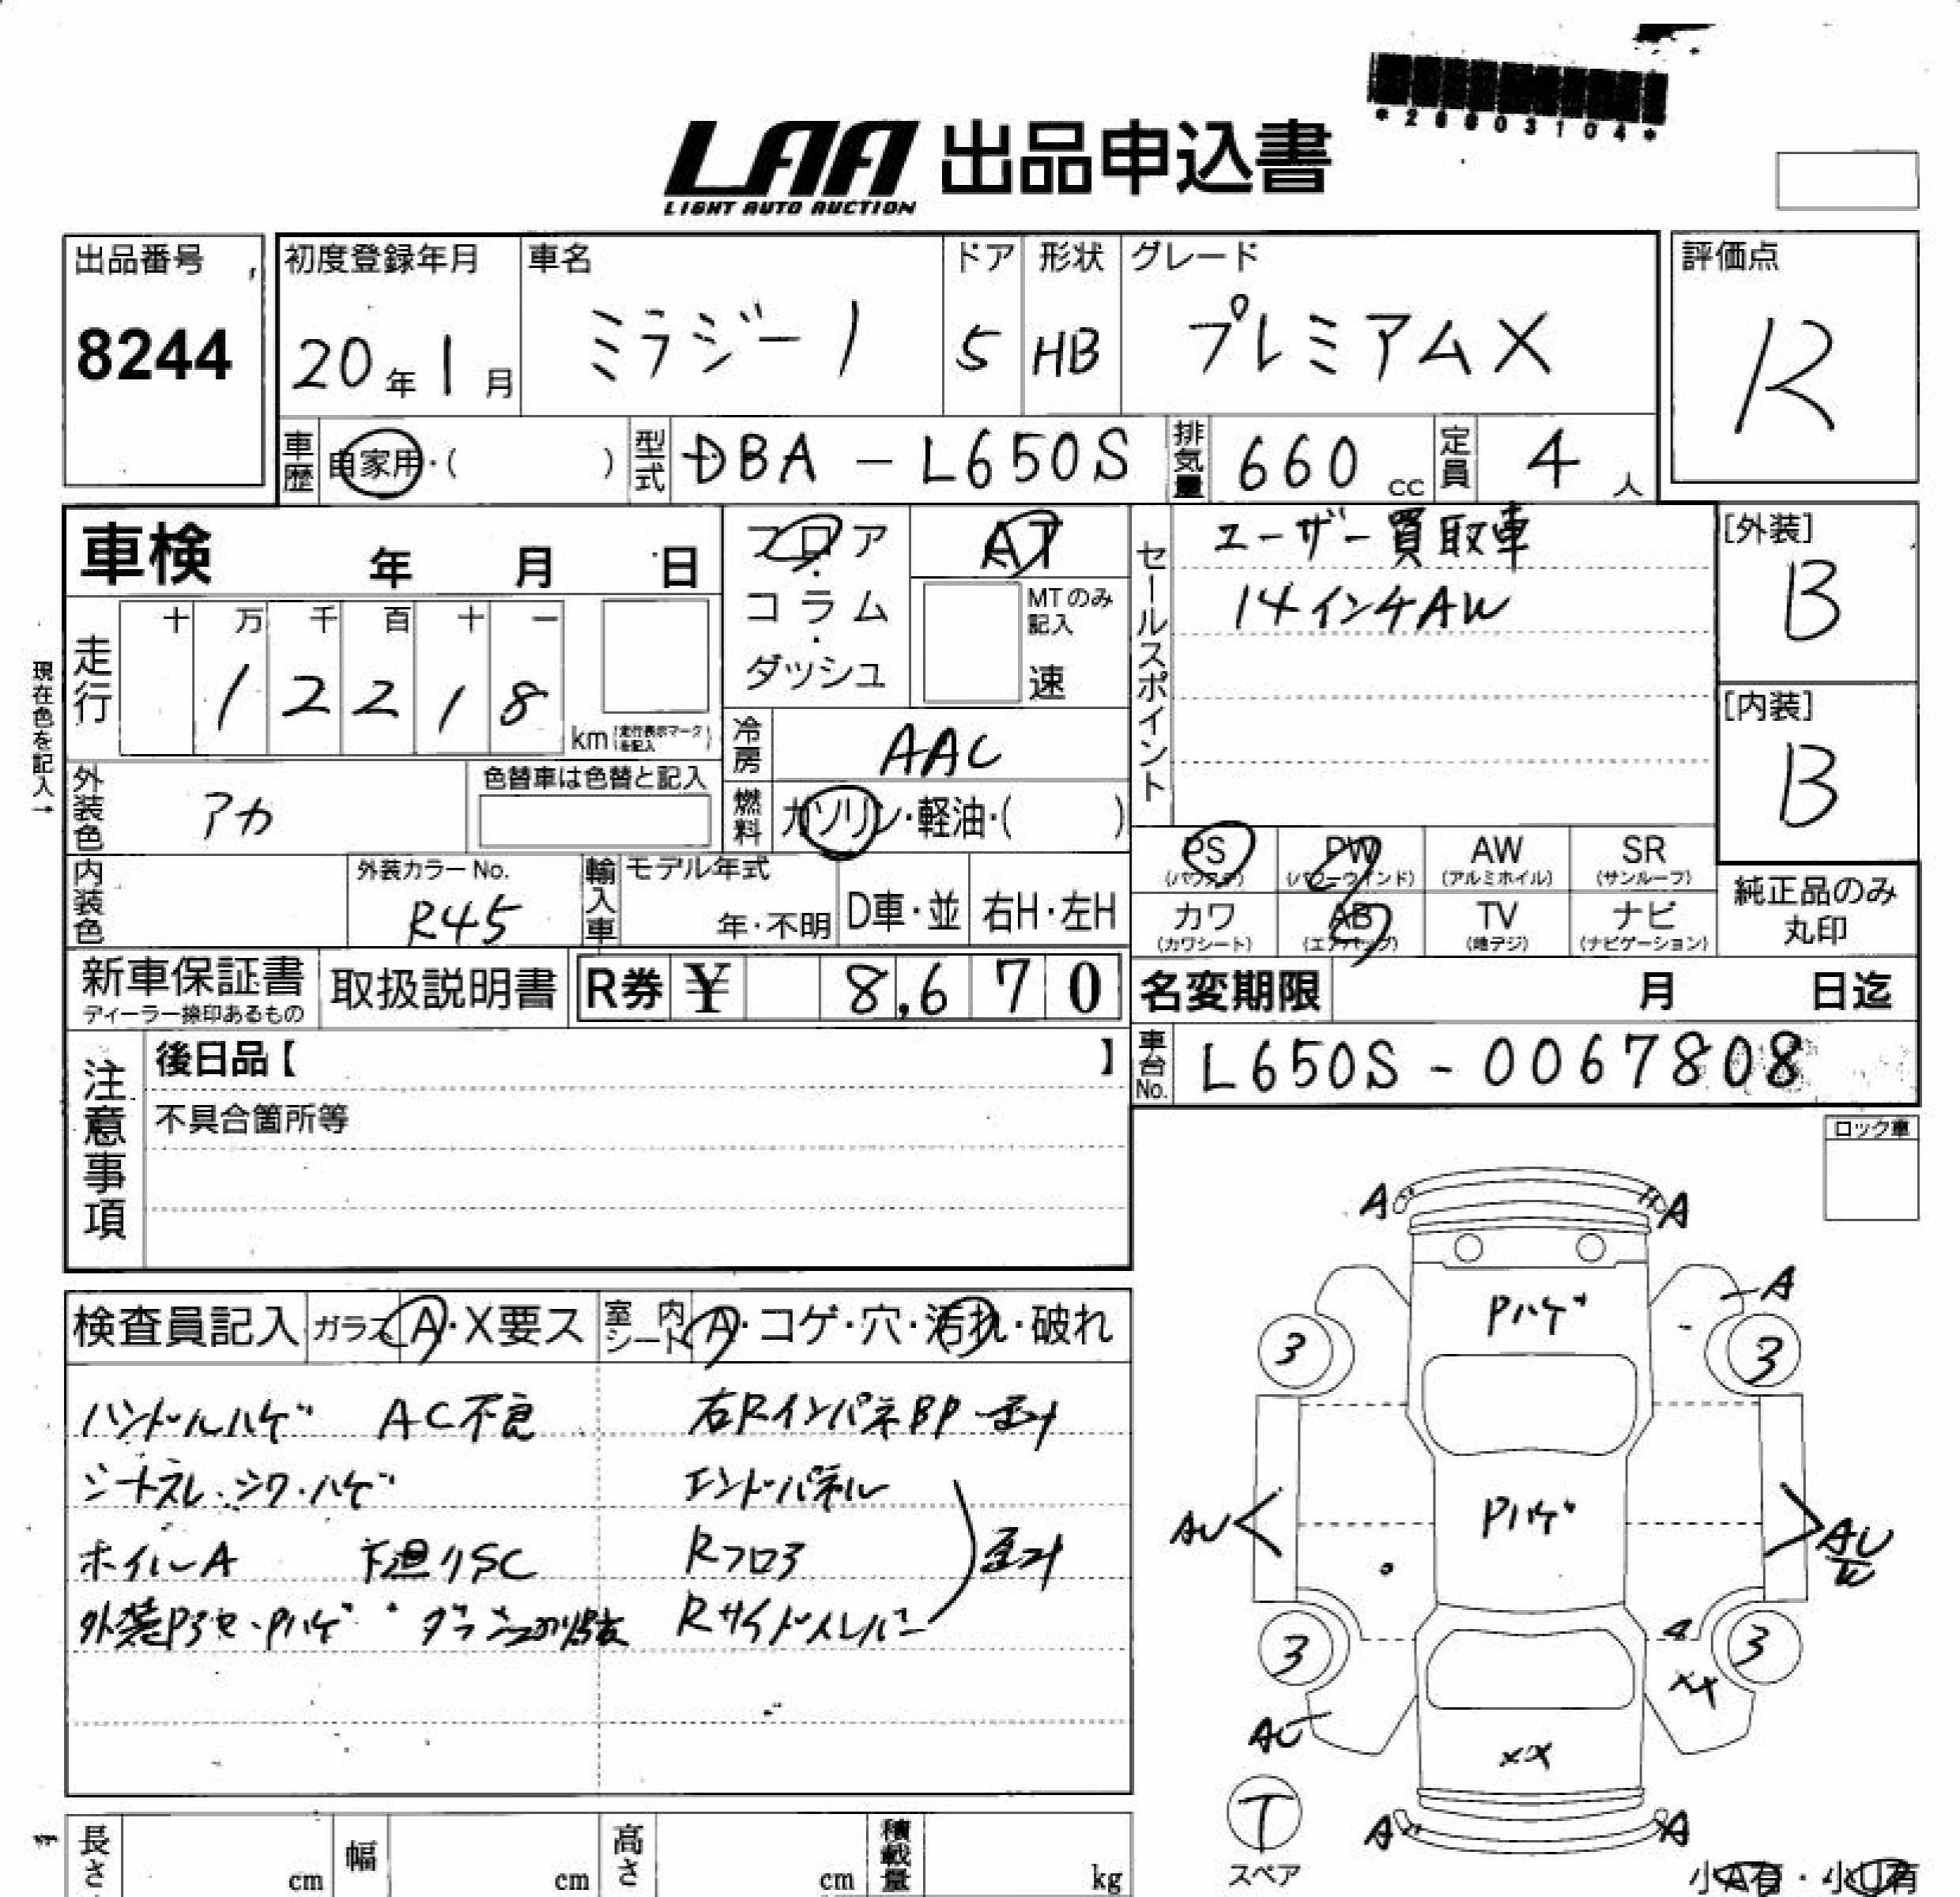 *26603104*
LAA 出品申込書
LIGHT AUTO AUCTION
出品番号
8244
初度登録年月
20年1月
車名
ミラジーノ
ドア
5
形状
HB
グレード
プレミアムX
評価点
R
車歴 自家用・( )
型式 DBA-L650S
排気量 660cc
定員 4人
車検 年 月 日
フロア・コラム・ダッシュ
AT
MTのみ記入
速
セールスポイント
ユーザー買取車
14インチAW
[外装]
B
[内装]
B
現在色を記入→
走行
十 万 千 百 十 一
1 2 2 1 8
km(走行表示マークを記入)
冷房 AAC
外装色 アカ
色替車は色替と記入
燃料 ガソリン・軽油・( )
内装色
外装カラーNo.
R45
輸入車
モデル年式
年・不明
D車・並
右H・左H
PS (パワステ)
PW (パワーウインド)
AW (アルミホイル)
SR (サンルーフ)
カワ (カワシート)
AB (エアバッグ)
TV (地デジ)
ナビ (ナビゲーション)
純正品のみ丸印
新車保証書
ディーラー捺印あるもの
取扱説明書
R券 ¥ 8,670
名変期限 月 日迄
車台No. L650S-0067808
注意事項
後日品【 】
不具合箇所等
ロック車
検査員記入
ガラス A・X要ス
室内シート A・コゲ・穴・汚れ・破れ
ハンドルハゲ AC不良
シートスレ・シワ・ハゲ
ホイルA 下廻りSC
外装Pヲセ・Pハゲ
右RインパネBP
エンドパネル
Rフロア
Rサイドメンバー
A A
Pハゲ
A
3 3
Pハゲ
AU
AU
W
3 3
A
XX
AU
XX
T
スペア
A A
小A有・小U有
長さ cm
幅 cm
高さ cm
積載量 kg